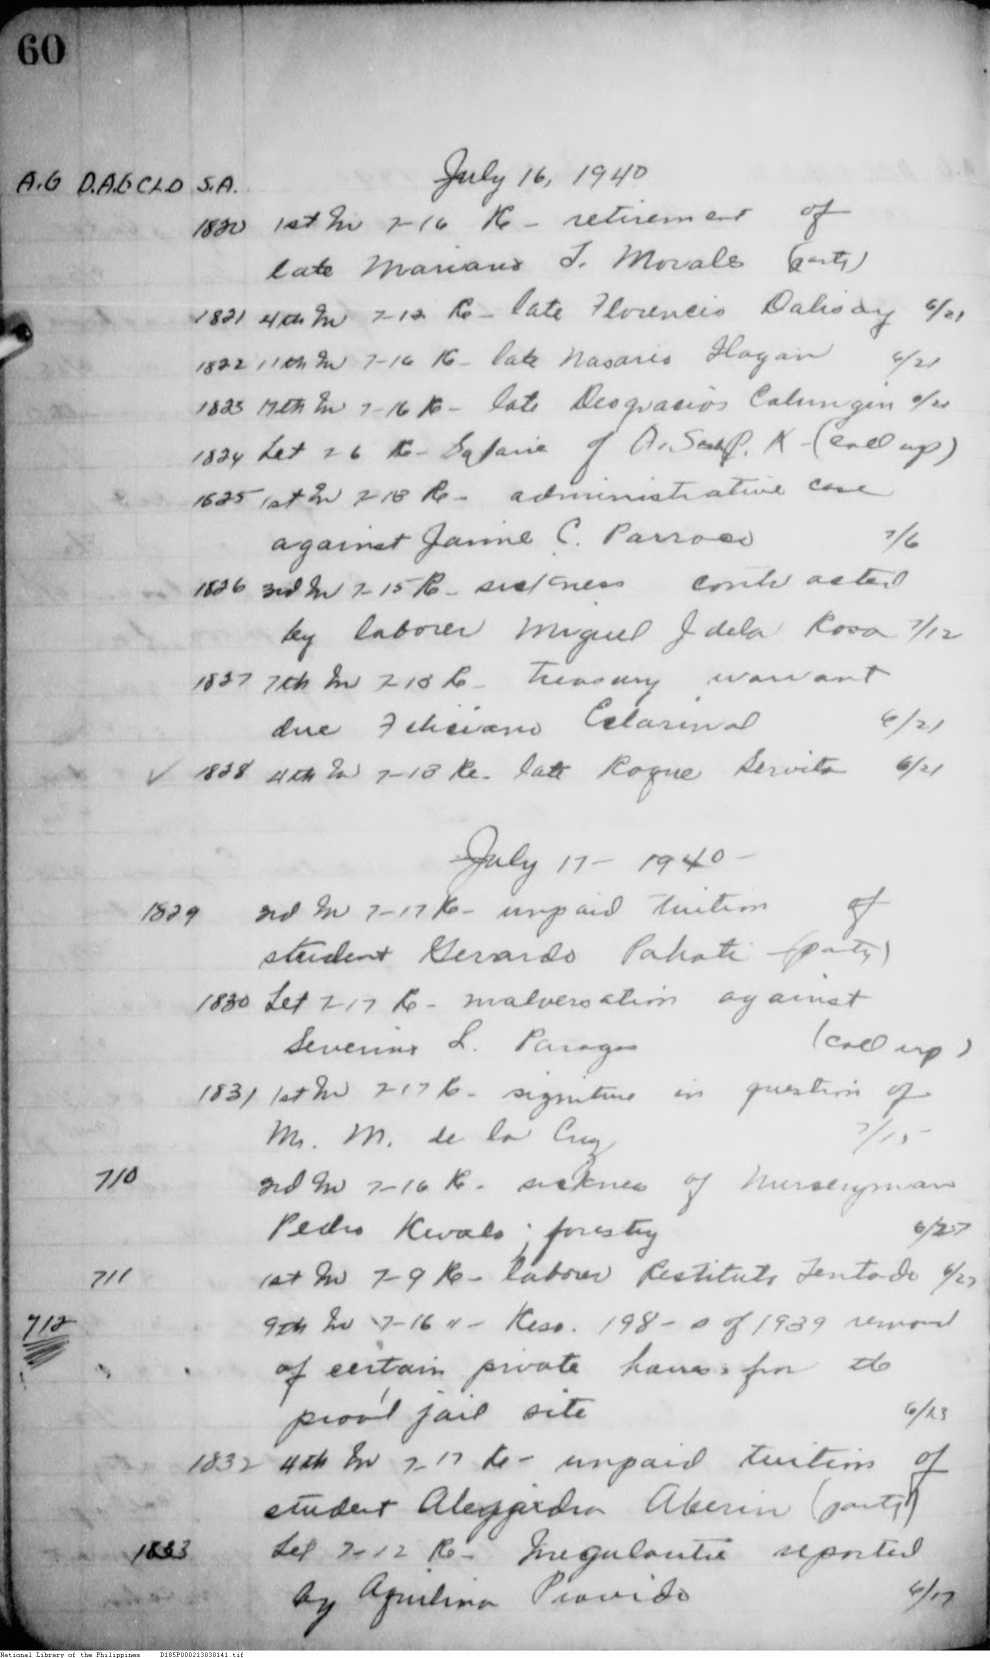 60
A.G D.A.G CLD S.A. July 16, 1940
1820 1st In 7-16 Re - retirement of
late Mariano T. Morales (party)
1821 4th In 7-12 Re - late Florencio Dalisay 6/21
1822 11th In 7-16 Re - late Nasario Ilagan 6/21
1823 17th In 7-16 Re - late Deogracios Calungin 6/21
1824 Let 7-6 Re - of (call up)
1825 1st In 7-13 Re - administrative case
against Jaime C. Parroco 7/6
1826 3rd In 7-15 Re - sickness contracted
by laborer Miguel J dela Rosa 7/12
1827 7th In 7-13 Re - treasury warrant
due Feliciano Eclarinal 6/21
1828 4th In 7-13 Re - late Roque Servito 6/21
July 17 - 1940 -
1829 3rd In 7-17 Re - unpaid tuition of
student Gerardo Pahati (party)
1830 Let 7-17 Re - malversation against
Severino L. (call up)
1831 1st In 7-17 Re - signiture in question of
Mr. M. de la Cruz 7/15
710 3rd In 7-16 Re - sicknes of nurseryman
Pedro ; forestry 6/27
711 1st In 7-9 Re - laborer Restituto Tentado 6/27
712 9th In 7-16 " - Reso. 198 - s of 1939 removal
of certain private houses for the
prov'l jail site 6/23
1832 4th In 7-17 Re - unpaid tuition of
student Alejandra Aberin (party)
1833 Let 7-12 Re - Irregularitie reported
by Aquilina Provido 6/17
National Library of the Philippines D185P000213838141.tif